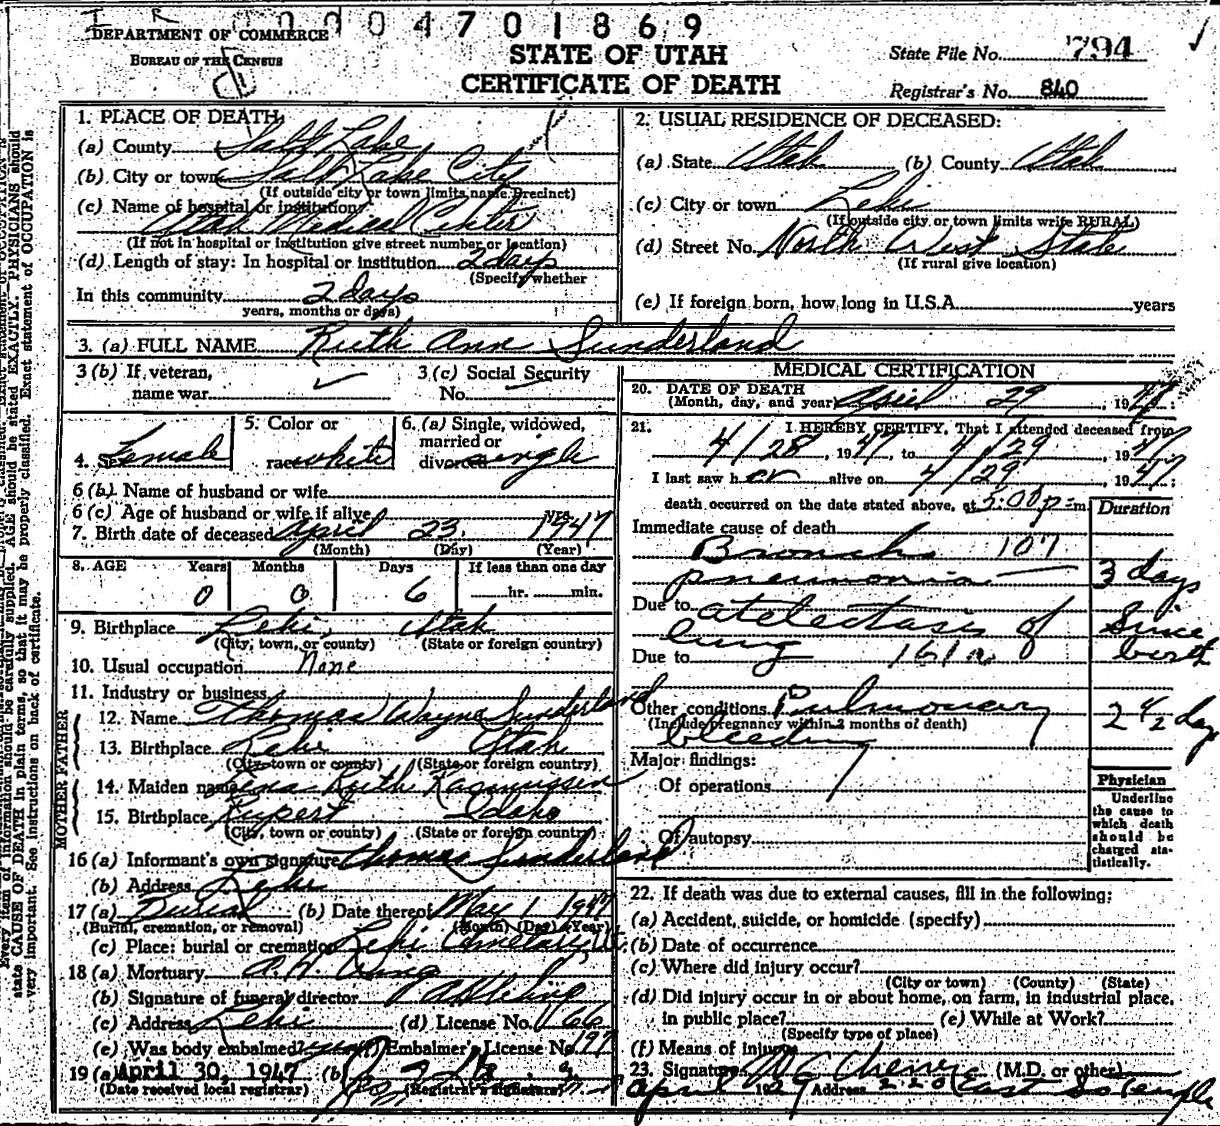 0004701869
DEPARTMENT OF COMMERCE
BUREAU OF THE CENSUS
STATE OF UTAH
CERTIFICATE OF DEATH
State File No. 794
Registrar's No. 840
1. PLACE OF DEATH:
(a) County Salt Lake
(b) City or town Salt Lake City
(If outside city or town limits name Precinct)
(c) Name of hospital or institution:
Utah Medical Center
(If not in hospital or institution give street number or location)
(d) Length of stay: In hospital or institution 2 days
(Specify whether
In this community 2 days
years, months or days)
2. USUAL RESIDENCE OF DECEASED:
(a) State Utah (b) County Utah
(c) City or town Lehi
(If outside city or town limits write RURAL)
(d) Street No. North West State
(If rural give location)
(e) If foreign born, how long in U.S.A. years
3. (a) FULL NAME Ruth Ann Sunderland
3 (b) If veteran,
name war
3 (c) Social Security
No.
4. Sex Female
5. Color or
race white
6. (a) Single, widowed,
married or
divorced single
6 (b) Name of husband or wife
6 (c) Age of husband or wife if alive yrs.
7. Birth date of deceased April 23, 1947
(Month) (Day) (Year)
8. AGE Years Months Days If less than one day
0 0 6 hr. min.
9. Birthplace Lehi, Utah
(City, town, or county) (State or foreign country)
10. Usual occupation None
11. Industry or business
FATHER
12. Name Thomas Wayne Sunderland
13. Birthplace Lehi Utah
(City, town or county) (State or foreign country)
MOTHER
14. Maiden name Ruth Rasmussen
15. Birthplace Rupert Idaho
(City, town or county) (State or foreign country)
16 (a) Informant's own signature Thomas Sunderland
(b) Address Lehi
17 (a) Burial (b) Date thereof May 1 1947
(Burial, cremation, or removal) (Month) (Day) (Year)
(c) Place: burial or cremation Lehi Cemetery
18 (a) Mortuary
(b) Signature of funeral director
(c) Address Lehi (d) License No. 66
(e) Was body embalmed? Embalmer's License No. 197
19 (a) April 30, 1947 (b)
(Date received local registrar) (Registrar's signature)
MEDICAL CERTIFICATION
20. DATE OF DEATH
(Month, day, and year) April 29, 1947;
21. I HEREBY CERTIFY, That I attended deceased from
4/28, 1947, to 4/29, 1947
I last saw her alive on 4/29, 1947;
death occurred on the date stated above, at 5:00 p m.
Duration
Immediate cause of death
Broncho 107
pneumonia 3 days
Due to atelectasis of Since
lung birth
Due to 161a
Other conditions Pulmonary 2 1/2 day
(Include pregnancy within 3 months of death)
bleeding
Major findings:
Of operations
Of autopsy
Physician
Underline
the cause to
which death
should be
charged sta-
tistically.
22. If death was due to external causes, fill in the following:
(a) Accident, suicide, or homicide (specify)
(b) Date of occurrence
(c) Where did injury occur?
(City or town) (County) (State)
(d) Did injury occur in or about home, on farm, in industrial place,
in public place? (e) While at Work?
(Specify type of place)
(f) Means of injury
23. Signature (M.D. or other)
April 1929 Address 220 East So Temple
Every item of information should be carefully supplied. AGE should be stated EXACTLY. PHYSICIANS should
state CAUSE OF DEATH in plain terms, so that it may be properly classified. Exact statement of OCCUPATION is
very important. See instructions on back of certificate.